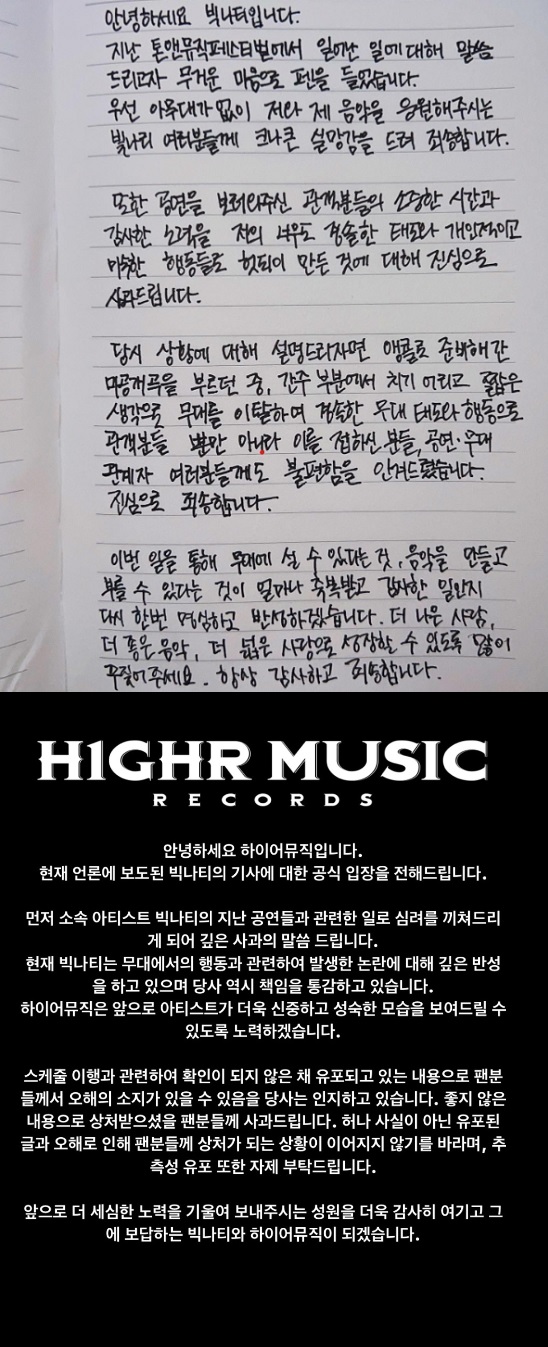 안녕하세요 빅나티입니다.
지난 톤앤뮤직페스티벌에서 일어난 일에 대해 말씀
드리고자 무거운 마음으로 펜을 들었습니다.
우선 아무대가 없이 저와 제 음악을 응원해주시는
빛나리 여러분들께 크나큰 실망감을 드려 죄송합니다.
또한 공연을 보러와주신 관객분들의 소중한 시간과
감사한 노력을 저의 너무도 경솔한 태도와 개인적이고
미숙한 행동들로 헛되이 만든 것에 대해 진심으로
사과드립니다.
당시 상황에 대해 설명드리자면 앵콜로 준비해간
미공개곡을 부르던 중, 간주 부분에서 치기 어리고 짧은
생각으로 무대를 이탈하여 경솔한 무대 태도와 행동으로
관객분들 뿐만 아니라 이를 접하신 분들, 공연·무대
관계자 여러분들께도 불편함을 안겨드렸습니다.
진심으로 죄송합니다.
이번 일을 통해 무대에 설 수 있다는 것, 음악을 만들고
부를 수 있다는 것이 얼마나 축복받고 감사한 일인지
다시 한번 명심하고 반성하겠습니다. 더 나은 사람,
더 좋은 음악, 더 넓은 사랑으로 성장할 수 있도록 많이
꾸짖어주세요. 항상 감사하고 죄송합니다.
H1GHR MUSIC
RECORDS
안녕하세요 하이어뮤직입니다.
현재 언론에 보도된 빅나티의 기사에 대한 공식 입장을 전해드립니다.
먼저 소속 아티스트 빅나티의 지난 공연들과 관련한 일로 심려를 끼쳐드리
게 되어 깊은 사과의 말씀 드립니다.
현재 빅나티는 무대에서의 행동과 관련하여 발생한 논란에 대해 깊은 반성
을 하고 있으며 당사 역시 책임을 통감하고 있습니다.
하이어뮤직은 앞으로 아티스트가 더욱 신중하고 성숙한 모습을 보여드릴 수
있도록 노력하겠습니다.
스케줄 이행과 관련하여 확인이 되지 않은 채 유포되고 있는 내용으로 팬분
들께서 오해의 소지가 있을 수 있음을 당사는 인지하고 있습니다. 좋지 않은
내용으로 상처받으셨을 팬분들께 사과드립니다. 허나 사실이 아닌 유포된
글과 오해로 인해 팬분들께 상처가 되는 상황이 이어지지 않기를 바라며, 추
측성 유포 또한 자제 부탁드립니다.
앞으로 더 세심한 노력을 기울여 보내주시는 성원을 더욱 감사히 여기고 그
에 보답하는 빅나티와 하이어뮤직이 되겠습니다.